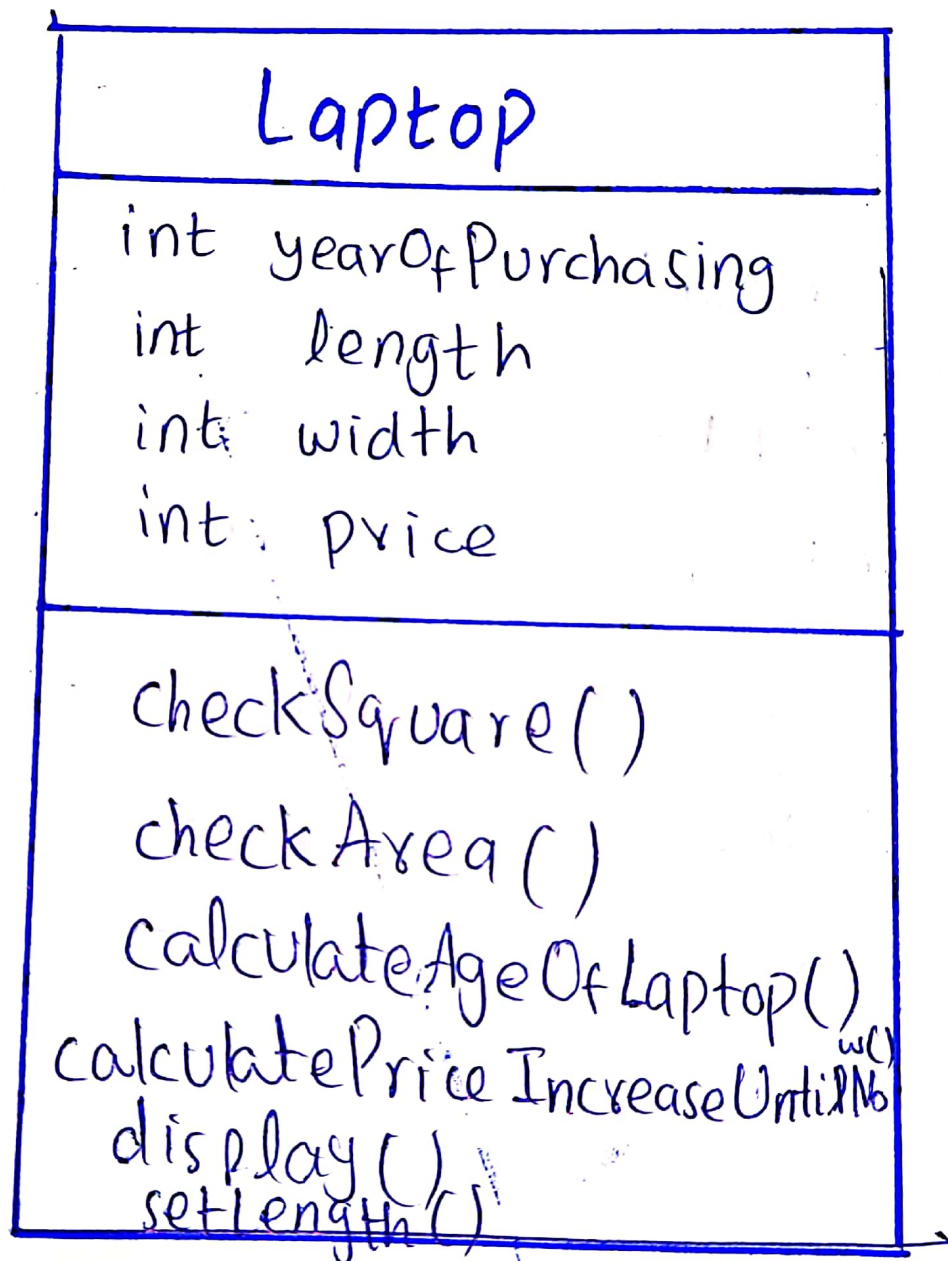 Laptop
int yearOfPurchasing
int length
int width
int price
checkSquare()
checkArea()
calculateAgeOfLaptop()
calculatePriceIncreaseUntilNow()
display()
setLength()